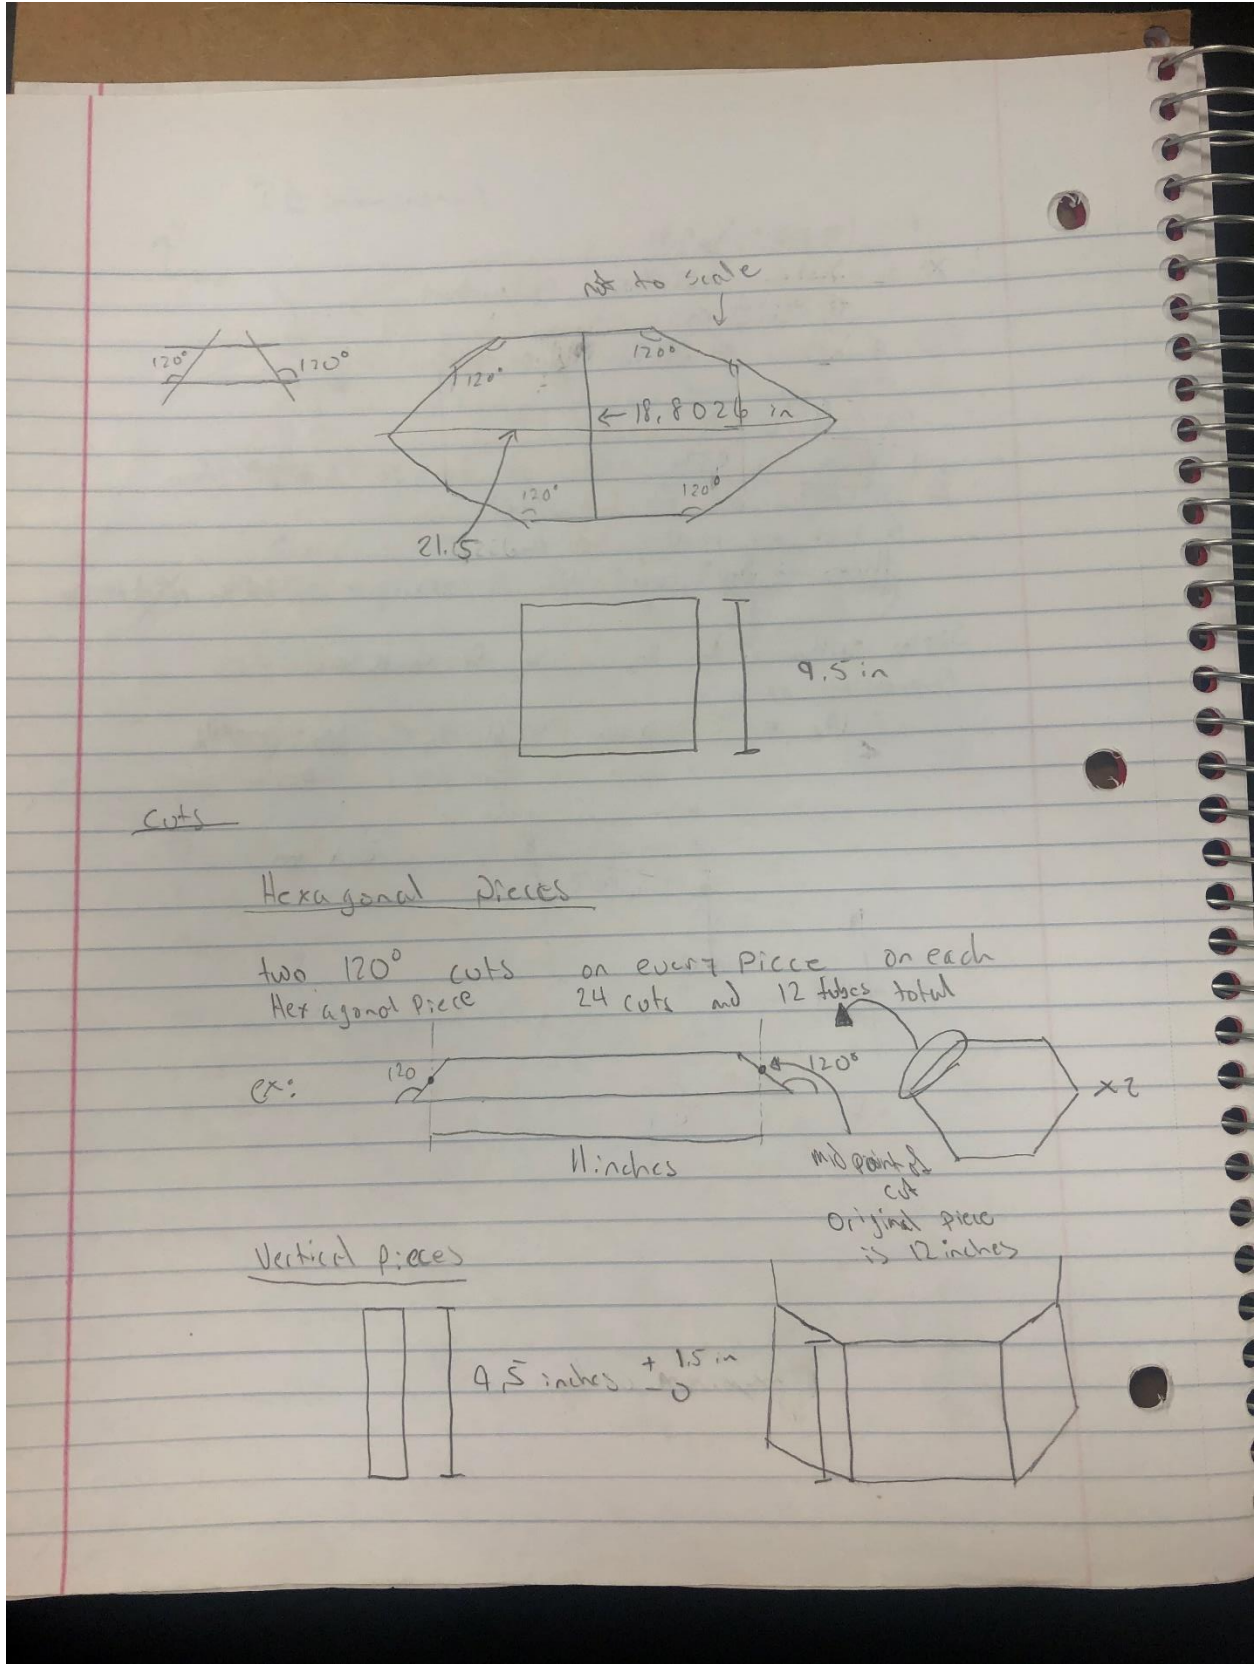 not to scale
120°
120°
120°
120°
← 18.8026 in
120°
120°
21.5
9.5 in
Cuts
Hexagonal pieces
two 120° cuts on every piece on each
Hexagonal piece 24 cuts and 12 tubes total
ex:
120
120°
x2
11 inches
midpoint of
cut
Original piece
is 12 inches
Vertical pieces
9.5 inches + 1.5 in
- 0